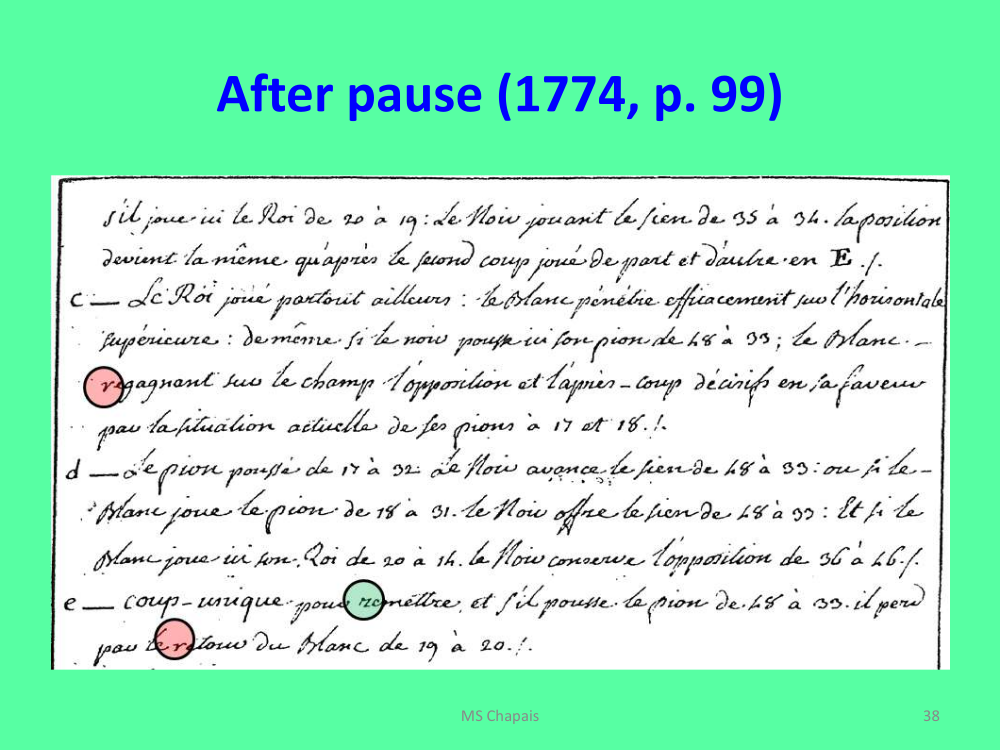 After pause (1774, p. 99)
s'il joue ici le Roi de 20 à 19: Le Noir jouant le sien de 35 à 34. la position
devient la même qu'après le second coup joué de part et d'autre en E ./.
c — Le Roi joué partout ailleurs : le Blanc pénétre efficacement sur l'horisontale
supérieure : de même si le noir pousse ici son pion de 48 à 33 ; le Blanc. –
regagnant sur le champ l'opposition et l'après-coup décisifs en sa faveur
par la situation actuelle de ses pions à 17 et 18 ./.
d — Le pion poussé de 17 à 32. Le Noir avance le sien de 48 à 33: ou si le –
Blanc joue le pion de 18 à 31. le Noir offre le sien de 48 à 33 : Et si le
Blanc joue ici son Roi de 20 à 14. le Noir conserve l'opposition de 36 à 46 ./.
e — coup-unique pour remettre, et s'il pousse le pion de 48 à 33. il perd
par le retour du Blanc de 19 à 20 ./.
MS Chapais
38